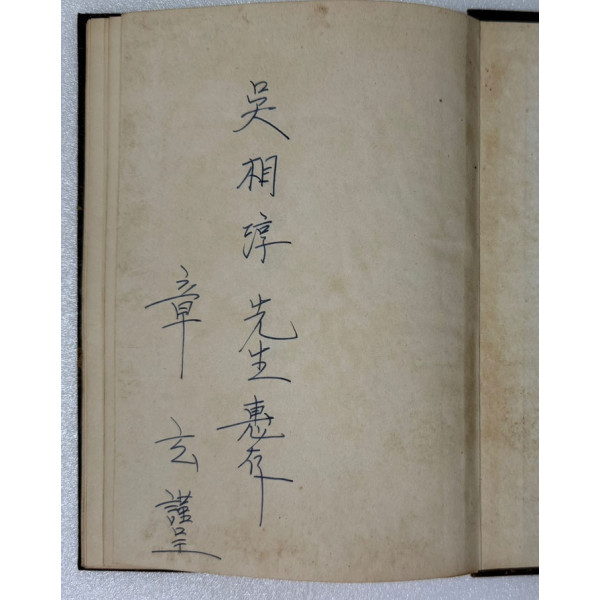 吳相淳先生惠存
章玄謹呈